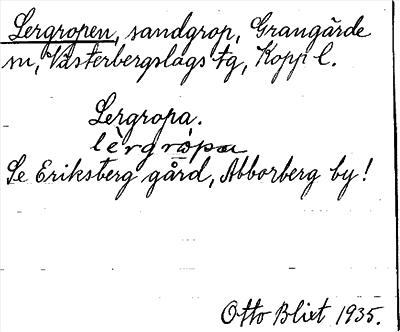 Lergropen, sandgrop, Grangärde
sn, Västerbergslags tg, Kopp l.
Lergropa.
lèrgròpa
Se Eriksberg gård, Abborberg by!
Otto Blixt 1935.